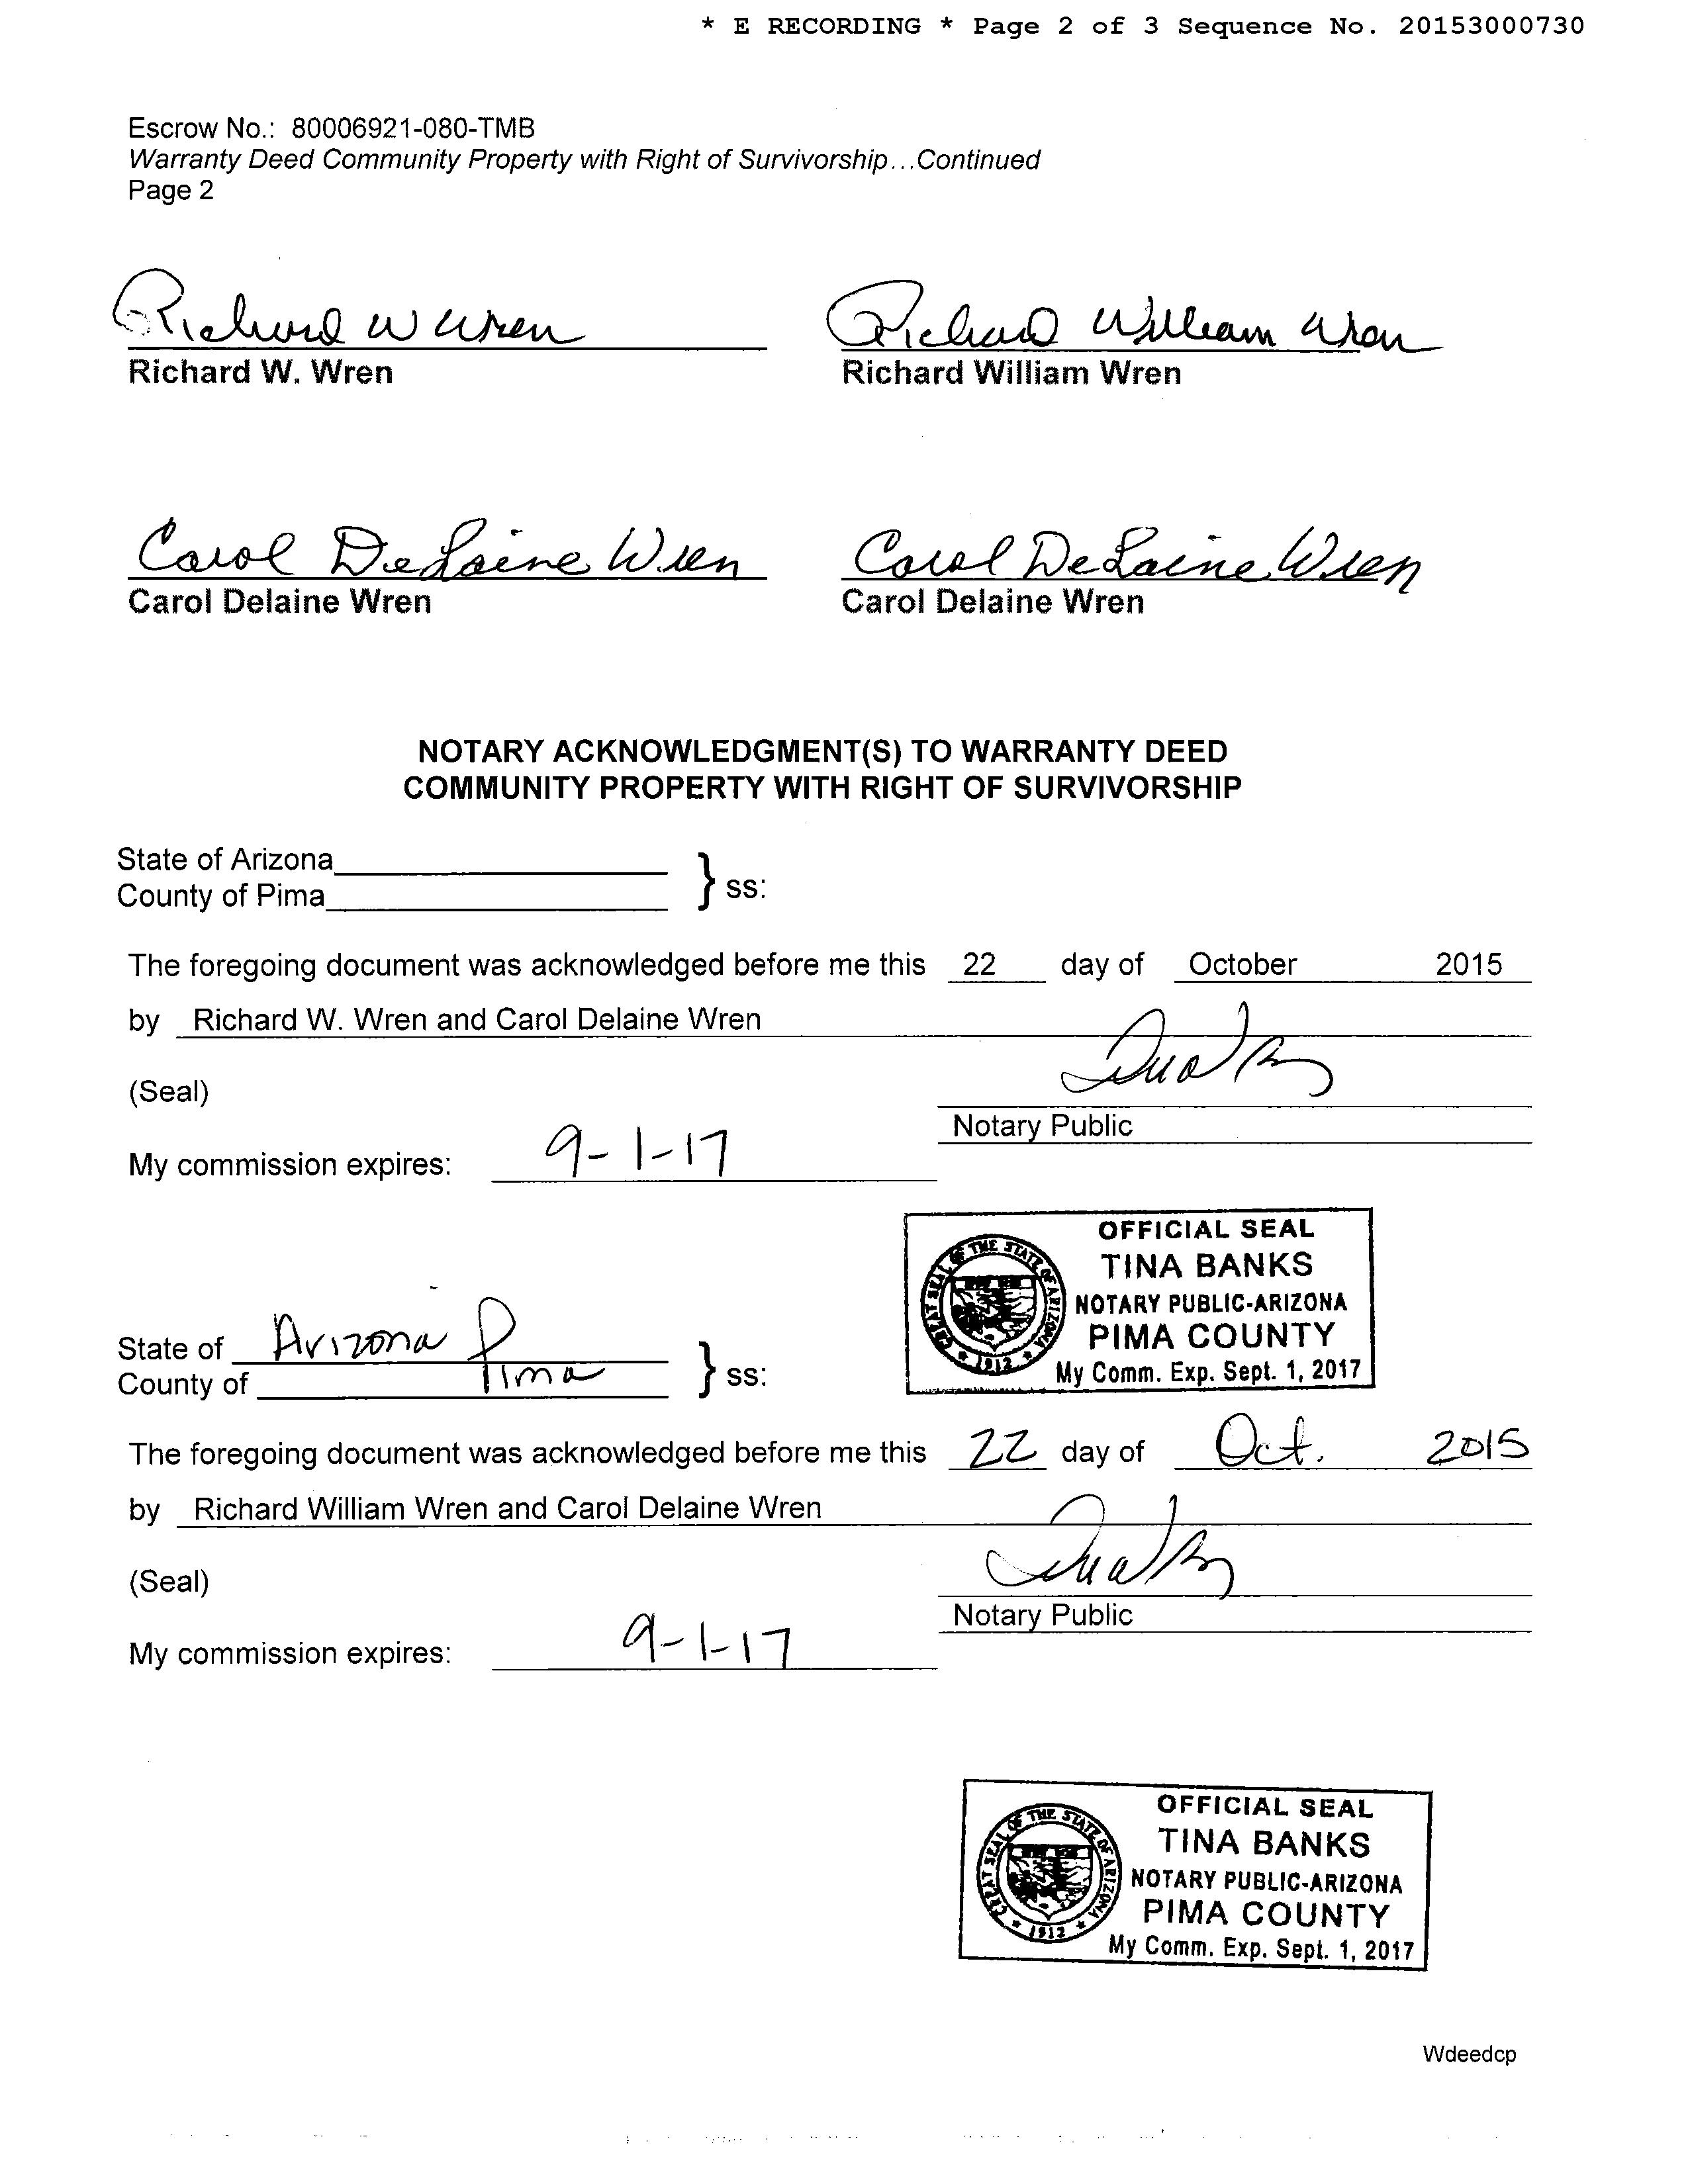 * E RECORDING * Page 2 of 3 Sequence No. 20153000730
Escrow No.: 80006921-080-TMB
Warranty Deed Community Property with Right of Survivorship...Continued
Page 2
Richard W Wren
Richard William Wren
Richard W. Wren
Richard William Wren
Carol DeLaine Wren
Carol DeLaine Wren
Carol Delaine Wren
Carol Delaine Wren
NOTARY ACKNOWLEDGMENT(S) TO WARRANTY DEED
COMMUNITY PROPERTY WITH RIGHT OF SURVIVORSHIP
State of Arizona
County of Pima
} ss:
The foregoing document was acknowledged before me this 22 day of October 2015
by Richard W. Wren and Carol Delaine Wren
(Seal)
Notary Public
My commission expires: 9-1-17
OFFICIAL SEAL
TINA BANKS
NOTARY PUBLIC-ARIZONA
PIMA COUNTY
My Comm. Exp. Sept. 1, 2017
GREAT SEAL OF THE STATE OF ARIZONA
1912
State of Arizona
County of Pima
} ss:
The foregoing document was acknowledged before me this 22 day of Oct. 2015
by Richard William Wren and Carol Delaine Wren
(Seal)
Notary Public
My commission expires: 9-1-17
OFFICIAL SEAL
TINA BANKS
NOTARY PUBLIC-ARIZONA
PIMA COUNTY
My Comm. Exp. Sept. 1, 2017
GREAT SEAL OF THE STATE OF ARIZONA
1912
Wdeedcp